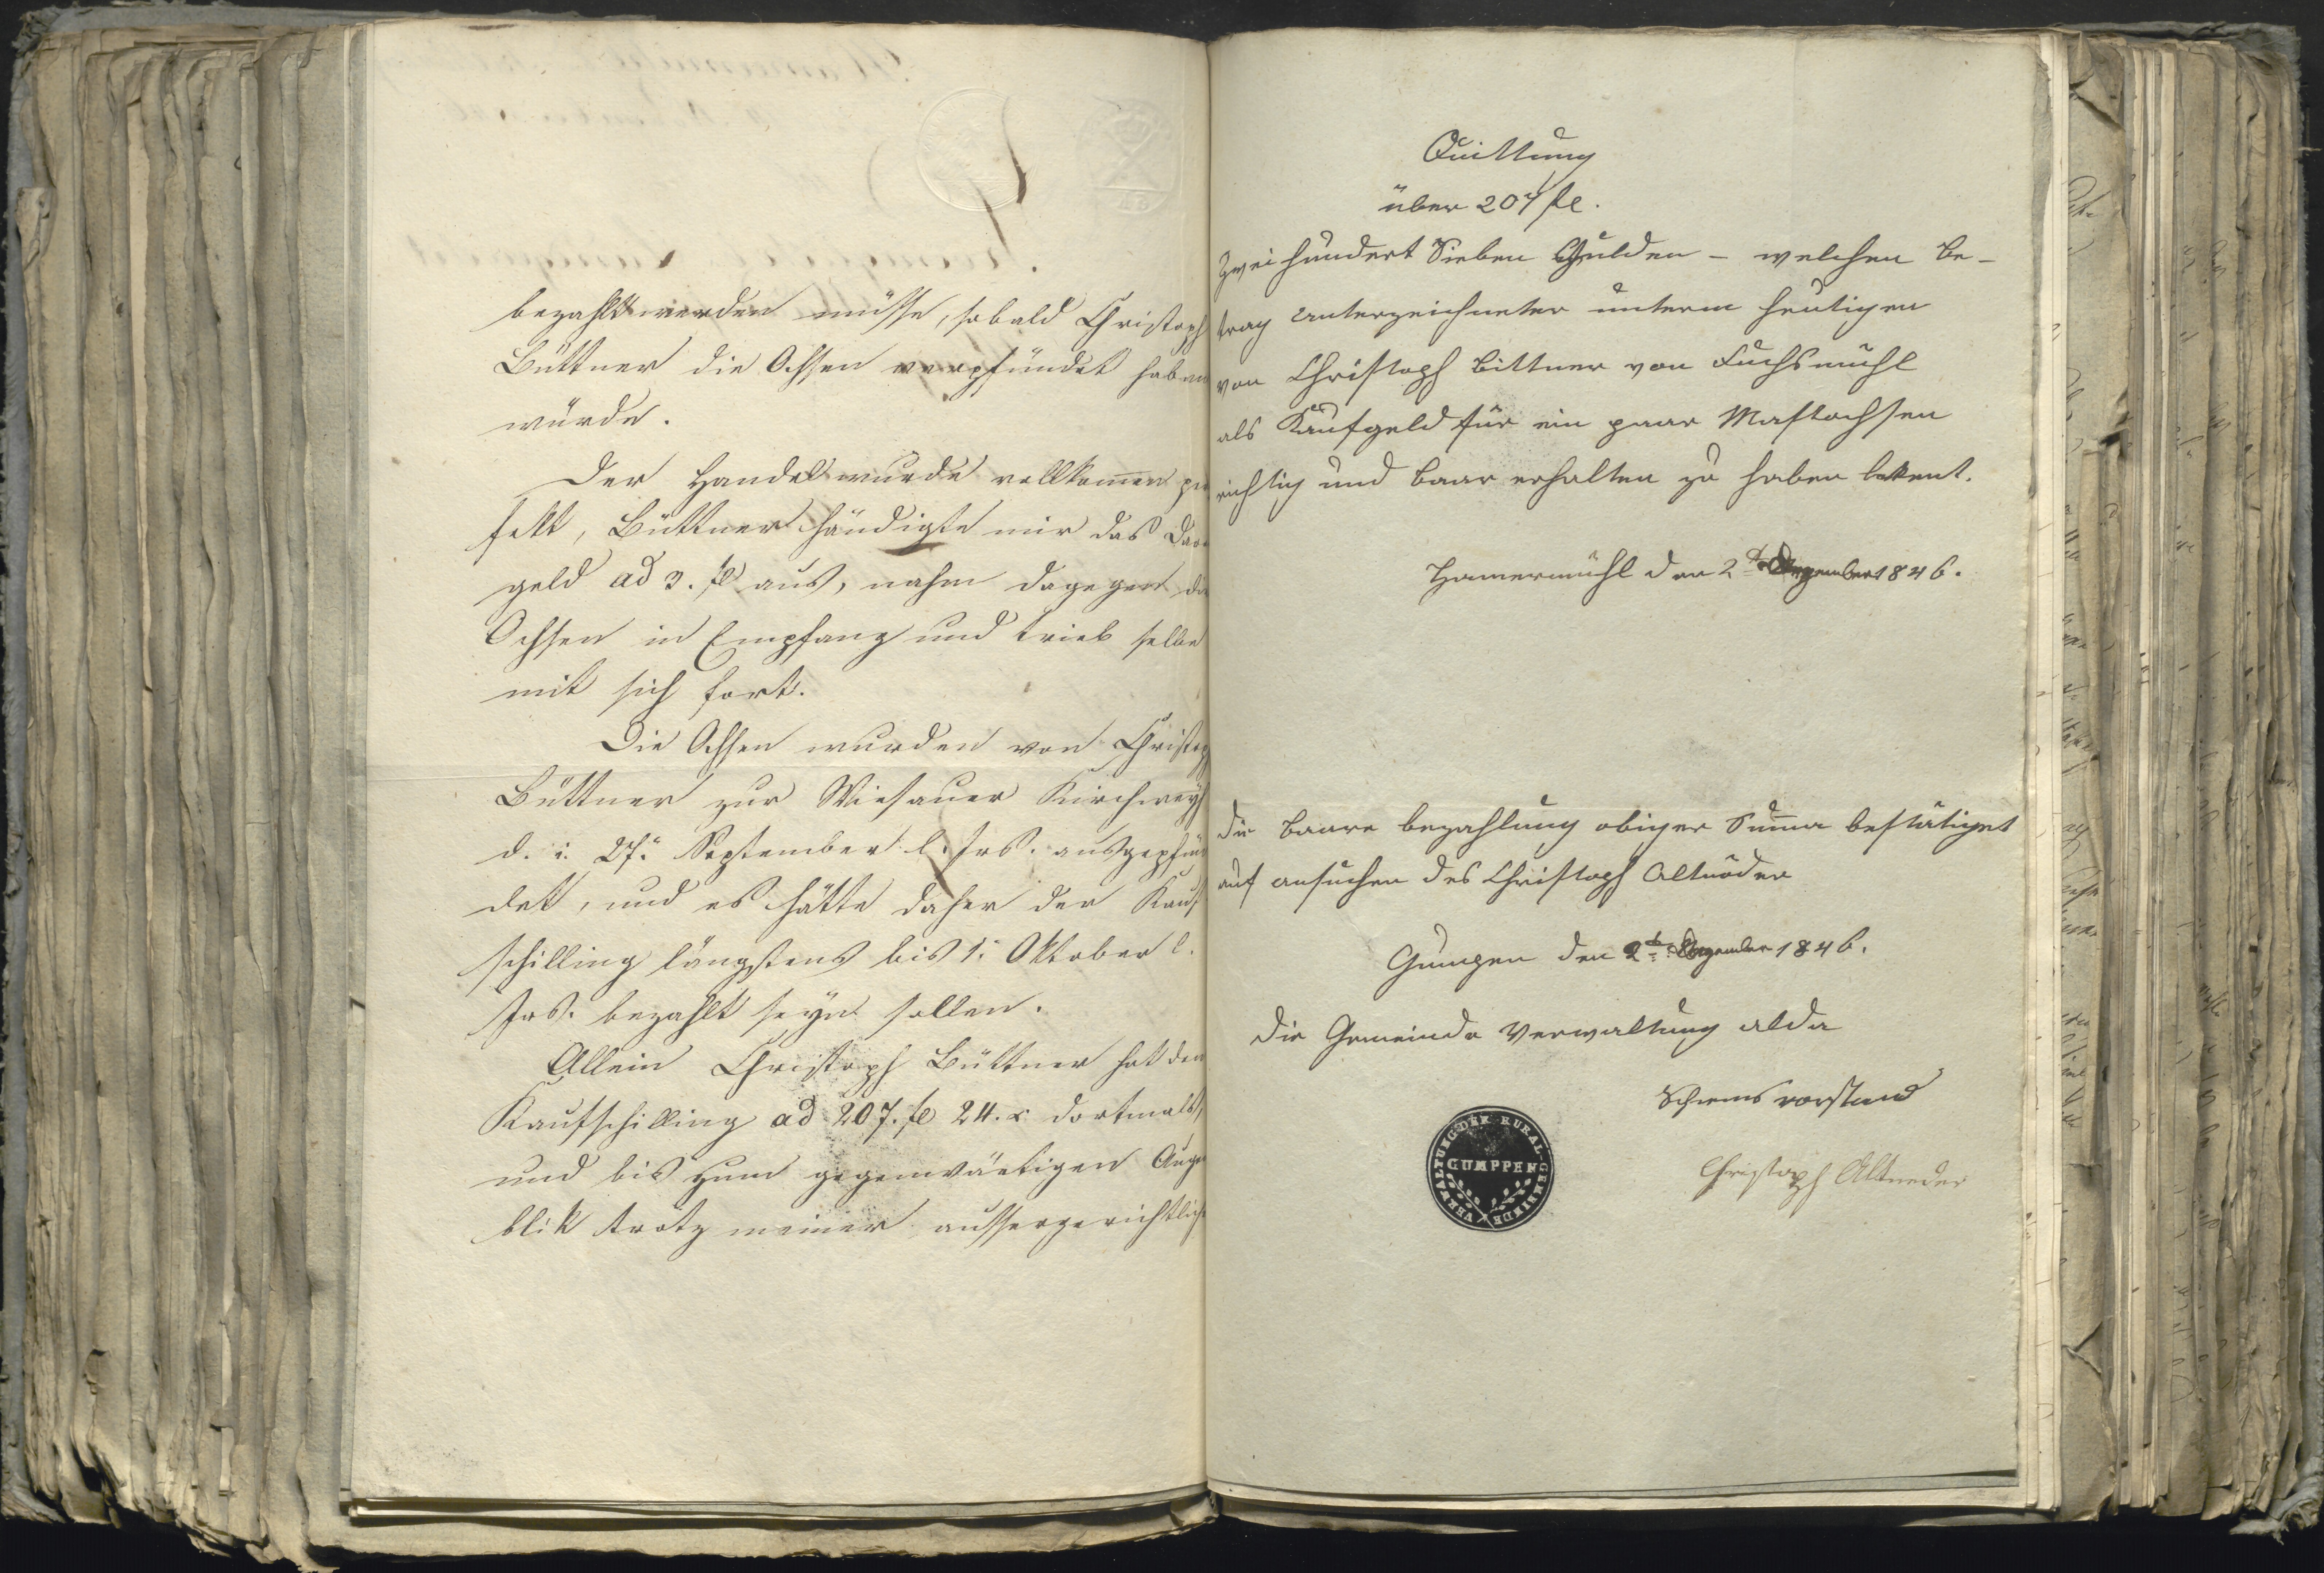 bezahlt werden müsse, sobald Christoph
Büttner die Ochsen verpfündet haben
würde.
Der Handel wurde vollkom̅en per
fekt, Büttner händigte mir das Dar
geld ad 3. fl aus, nahm dagegen die
Ochsen in Empfang und trieb selbe
mit sich fort.
Die Ochsen wurden von Christoph
Büttner zur Wiesauer Kirchweyh
d. i. 27. September l. Irs. ausgepfün
det, und es hätte daher der Kauf
schilling längstens bis 1. Oktober l.
Irs. bezahlt seyn sollen.
Allein Christoph Büttner hat den
Kaufschilling ad 207. fl 24. x dortmals,
und bis zum gegenwärtigen Augen
blik trotz meiner aussergerichtlich
Quittung
über 207 fl.
Zweihundert Sieben Gulden – welchen Be-
trag Unterzeichneter unterm heutigen
von Christoph Bittner von Fuchsmühl
als Kaufgeld für ein paar Mastochsen
richtig und baar erhalten zu haben bekent.
Hamermühl den 2t Dezember 1846.
Die baare bezahlung obiger Sum̅a bestätiget
auf ansuchen des Christoph Altnöder
Gumpen den 2t Dezember 1846.
Die Gemeinde Verwaltung alda
vorstand
Christoph Altneder
VERWALTUNG DER RURAL-GEMEINDE
GUMPPEN